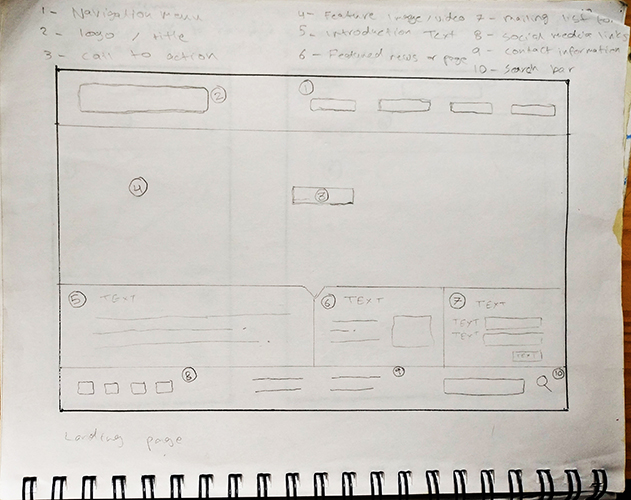 1 - Navigation Menu
2 - logo / title
3 - call to action
4 - Feature Image/video
5 - introduction Text
6 - Featured news or page
7 - mailing list
8 - social media links
9 - contact information
10 - Search bar
2
1
4
3
5 TEXT
6 TEXT
7 TEXT
TEXT
TEXT
TEXT
8
9
10
Landing page